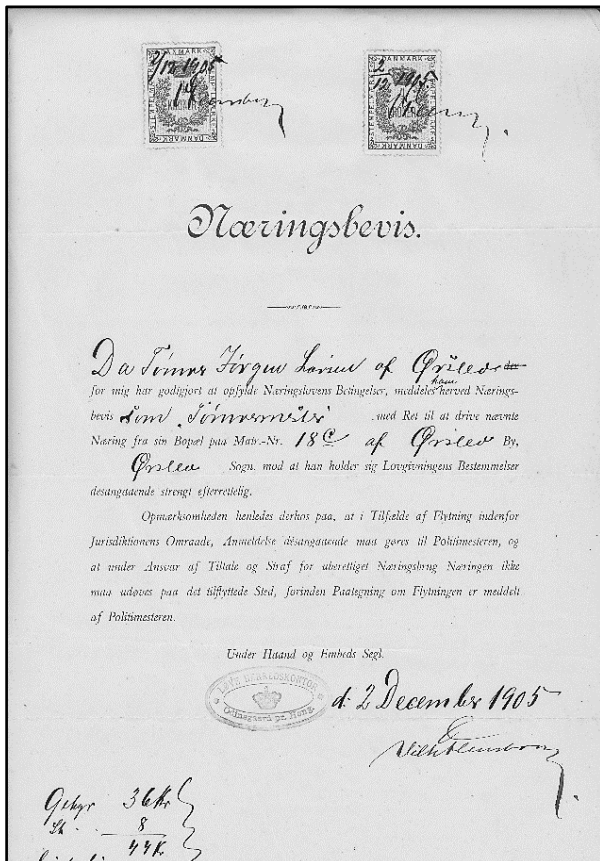 2/12 1905
2/12 1905
DANMARK
DANMARK
Næringsbevis.
Da Tømrer Jørgen Larsen af Ørslev
for mig har godtgjort at opfylde Næringslovens Betingelser, meddeles ham herved Nærings-
bevis som Tømrermester med Ret til at drive nævnte
Næring fra sin Bopæl paa Matr.-Nr. 18c af Ørslev By,
Ørslev Sogn. mod at han holder sig Lovgivningens Bestemmelser
desangaaende strengt efterrettelig.
Opmærksomheden henledes derhos paa, at i Tilfælde af Flytning indenfor
Jurisdiktionens Omraade, Anmeldelse desangaaende maa gøres til Politimesteren, og
at under Ansvar af Tiltale og Straf for uberettiget Næringsbrug Næringen ikke
maa udøves paa det tilflyttede Sted, forinden Paategning om Flytningen er meddelt
af Politimesteren.
Under Haand og Embeds Segl.
LØVE HERREDSKONTOR
pr. Høng.
d: 2 December 1905
Gebyr 36 Kr
8
44 Kr